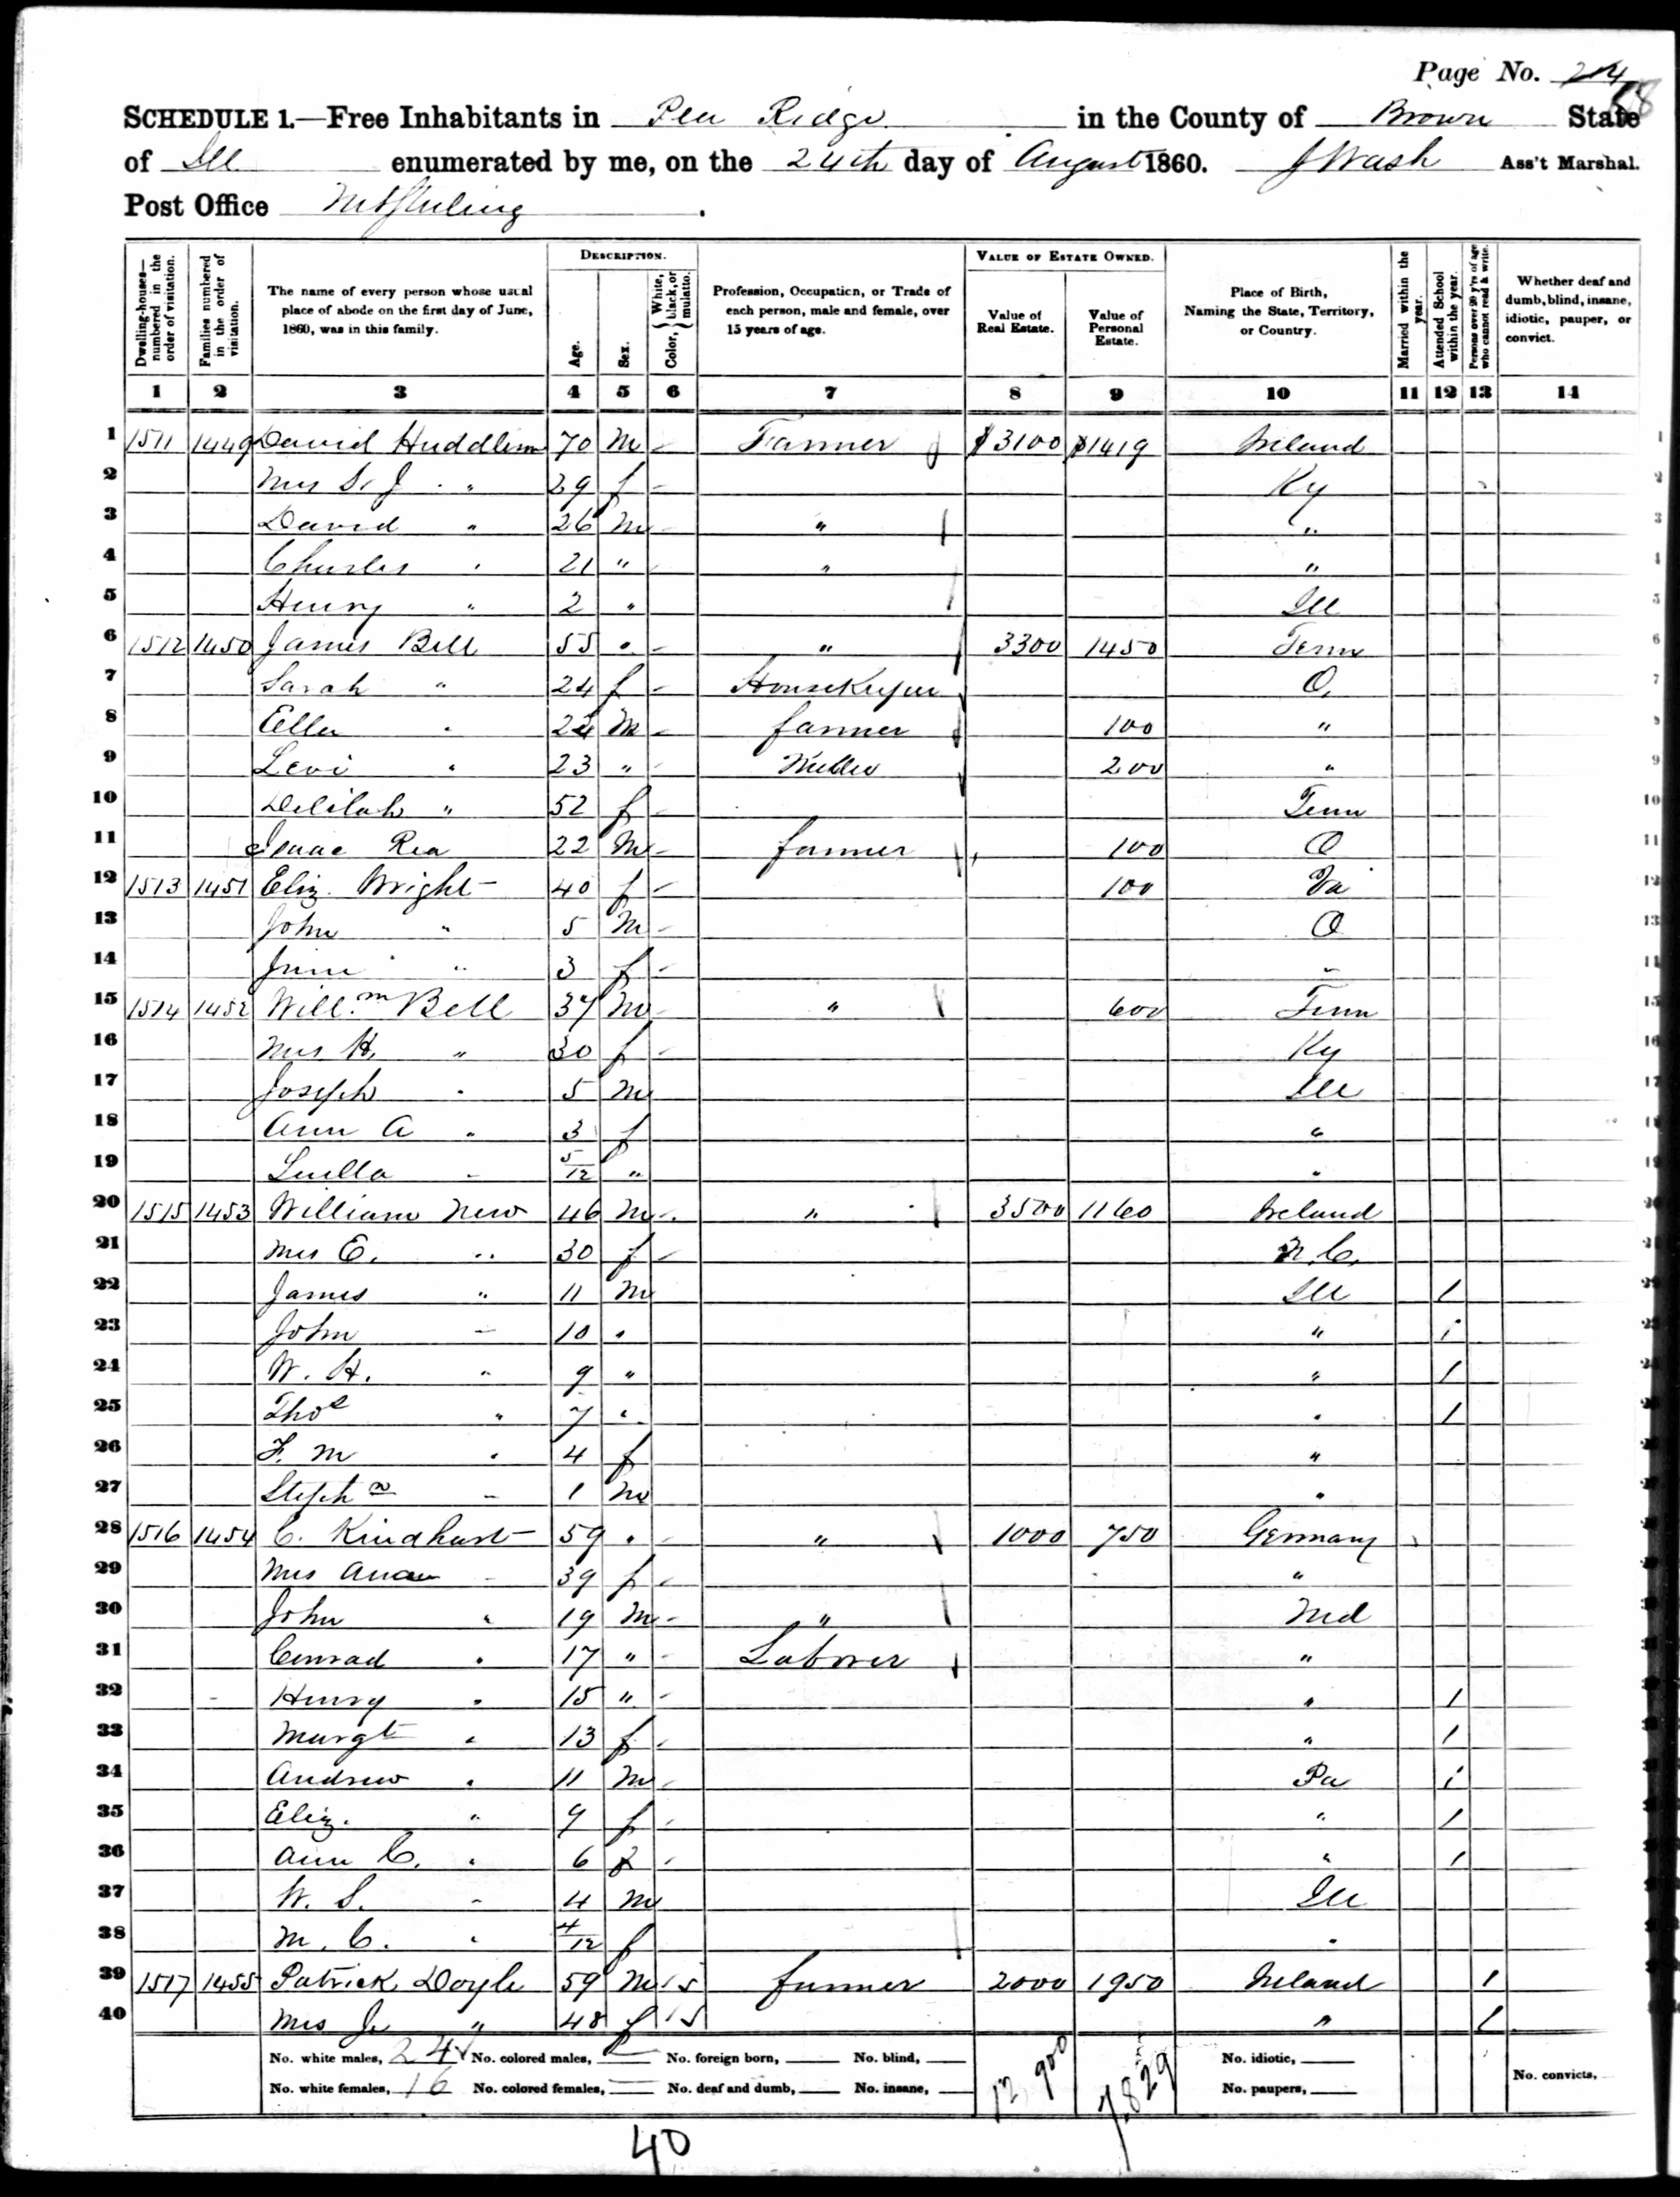 Page No. 214
58
SCHEDULE 1.—Free Inhabitants in Pea Ridge in the County of Brown State
of Ill enumerated by me, on the 24th day of August 1860. J Wash Ass't Marshal.
Post Office Mt Sterling .
Dwelling-houses—numbered in the order of visitation. Families numbered in the order of visitation. The name of every person whose usual place of abode on the first day of June, 1860, was in this family. DESCRIPTION. Age. Sex. Color, { White, black, or mulatto. Profession, Occupation, or Trade of each person, male and female, over 15 years of age. VALUE OF ESTATE OWNED. Value of Real Estate. Value of Personal Estate. Place of Birth, Naming the State, Territory, or Country. Married within the year. Attended School within the year. Persons over 20 y'rs of age who cannot read & write. Whether deaf and dumb, blind, insane, idiotic, pauper, or convict.
1 2 3 4 5 6 7 8 9 10 11 12 13 14
1 1511 1449 David 70 M Farmer $3100 $1419 Ireland 1
2 Mrs S. J. " 29 f Ky 2
3 David " 26 M " " 3
4 Charles " 21 " " " 4
5 Henry " 2 " Ill 5
6 1512 1450 James Bell 55 " " 3300 1450 Tenn 6
7 Sarah " 24 f HouseKeeper O. 7
8 " 24 M farmer 100 " 8
9 Levi " 23 " Miller 200 " 9
10 Delilah " 52 f Tenn 10
11 Isaac Rea 22 M farmer 100 O 11
12 1513 1451 Eliz. Wright 40 f 100 Va 12
13 John " 5 M O 13
14 " 3 f " 14
15 1514 1452 Will.m Bell 37 M " 600 Tenn 15
16 Mrs H. " 30 f Ky 16
17 Joseph " 5 M Ill 17
18 Ann A " 3 f " 18
19 Luella " 5/12 " " 19
20 1515 1453 William New 46 M " 3500 1160 Ireland 20
21 Mrs E. " 30 f N.C. 21
22 James " 11 M Ill / 22
23 John " 10 " " / 23
24 W. H. " 9 " " / 24
25 Thos " 7 " " / 25
26 F. M " 4 f " 26
27 Stephn " 1 M " 27
28 1516 1454 C. Kindhart 59 " " 1000 750 Germany 28
29 Mrs " 39 f " 29
30 John " 19 M " Md 30
31 Conrad " 17 " Laborer " 31
32 Henry " 15 " " / 32
33 Margt " 13 f " / 33
34 Andrew " 11 M Pa / 34
35 Eliz. " 9 f " / 35
36 Ann C. " 6 f " / 36
37 W. S. " 4 M Ill 37
38 M. C. " 4/12 f " 38
39 1517 1455 Patrick Doyle 59 M 15 farmer 2000 1950 Ireland / 39
40 Mrs J. " 48 f 15 " / 40
No. white males, 24 No. colored males, No. foreign born, No. blind, 12,900 7,829 No. idiotic,
No. white females, 16 No. colored females, No. deaf and dumb, No. insane, No. paupers, No. convicts,
40